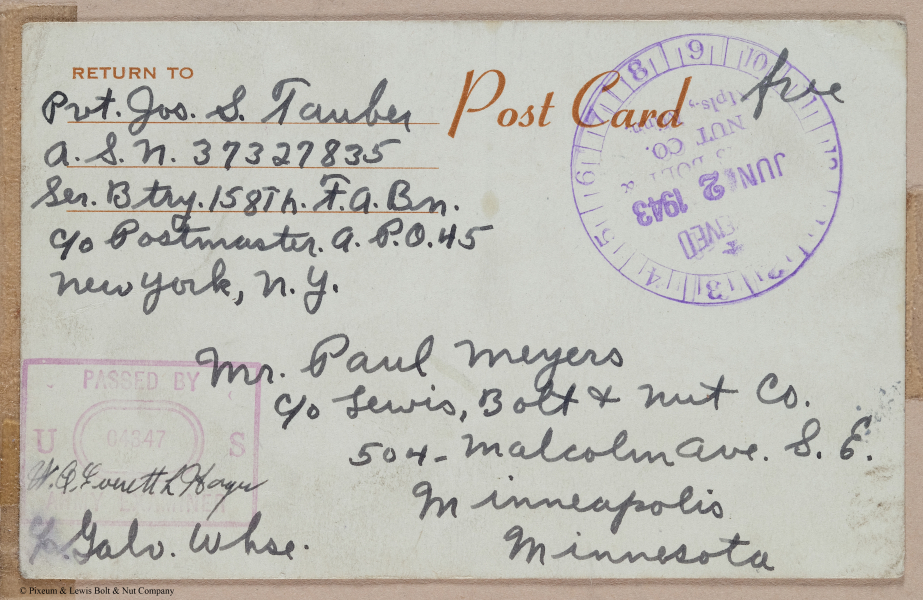 RETURN TO
Pvt. Jos. S. Tauber
A.S.N. 37327835
Ser. Btry. 158Th. F.A. Bn.
c/o Postmaster. A.P.O. 45
New York, N.Y.
Post Card
free
8 9 10
7
6
5
4 3 2
NUT CO.
JUN 2 1943
Mr. Paul Meyers
c/o Lewis, Bolt & Nut Co.
504 - Malcolm Ave. S. E.
Minneapolis
Minnesota
PASSED BY
U 04347 S
W.O. Everett L Hager
c/o Galv. Whse.
© Pixeum & Lewis Bolt & Nut Company